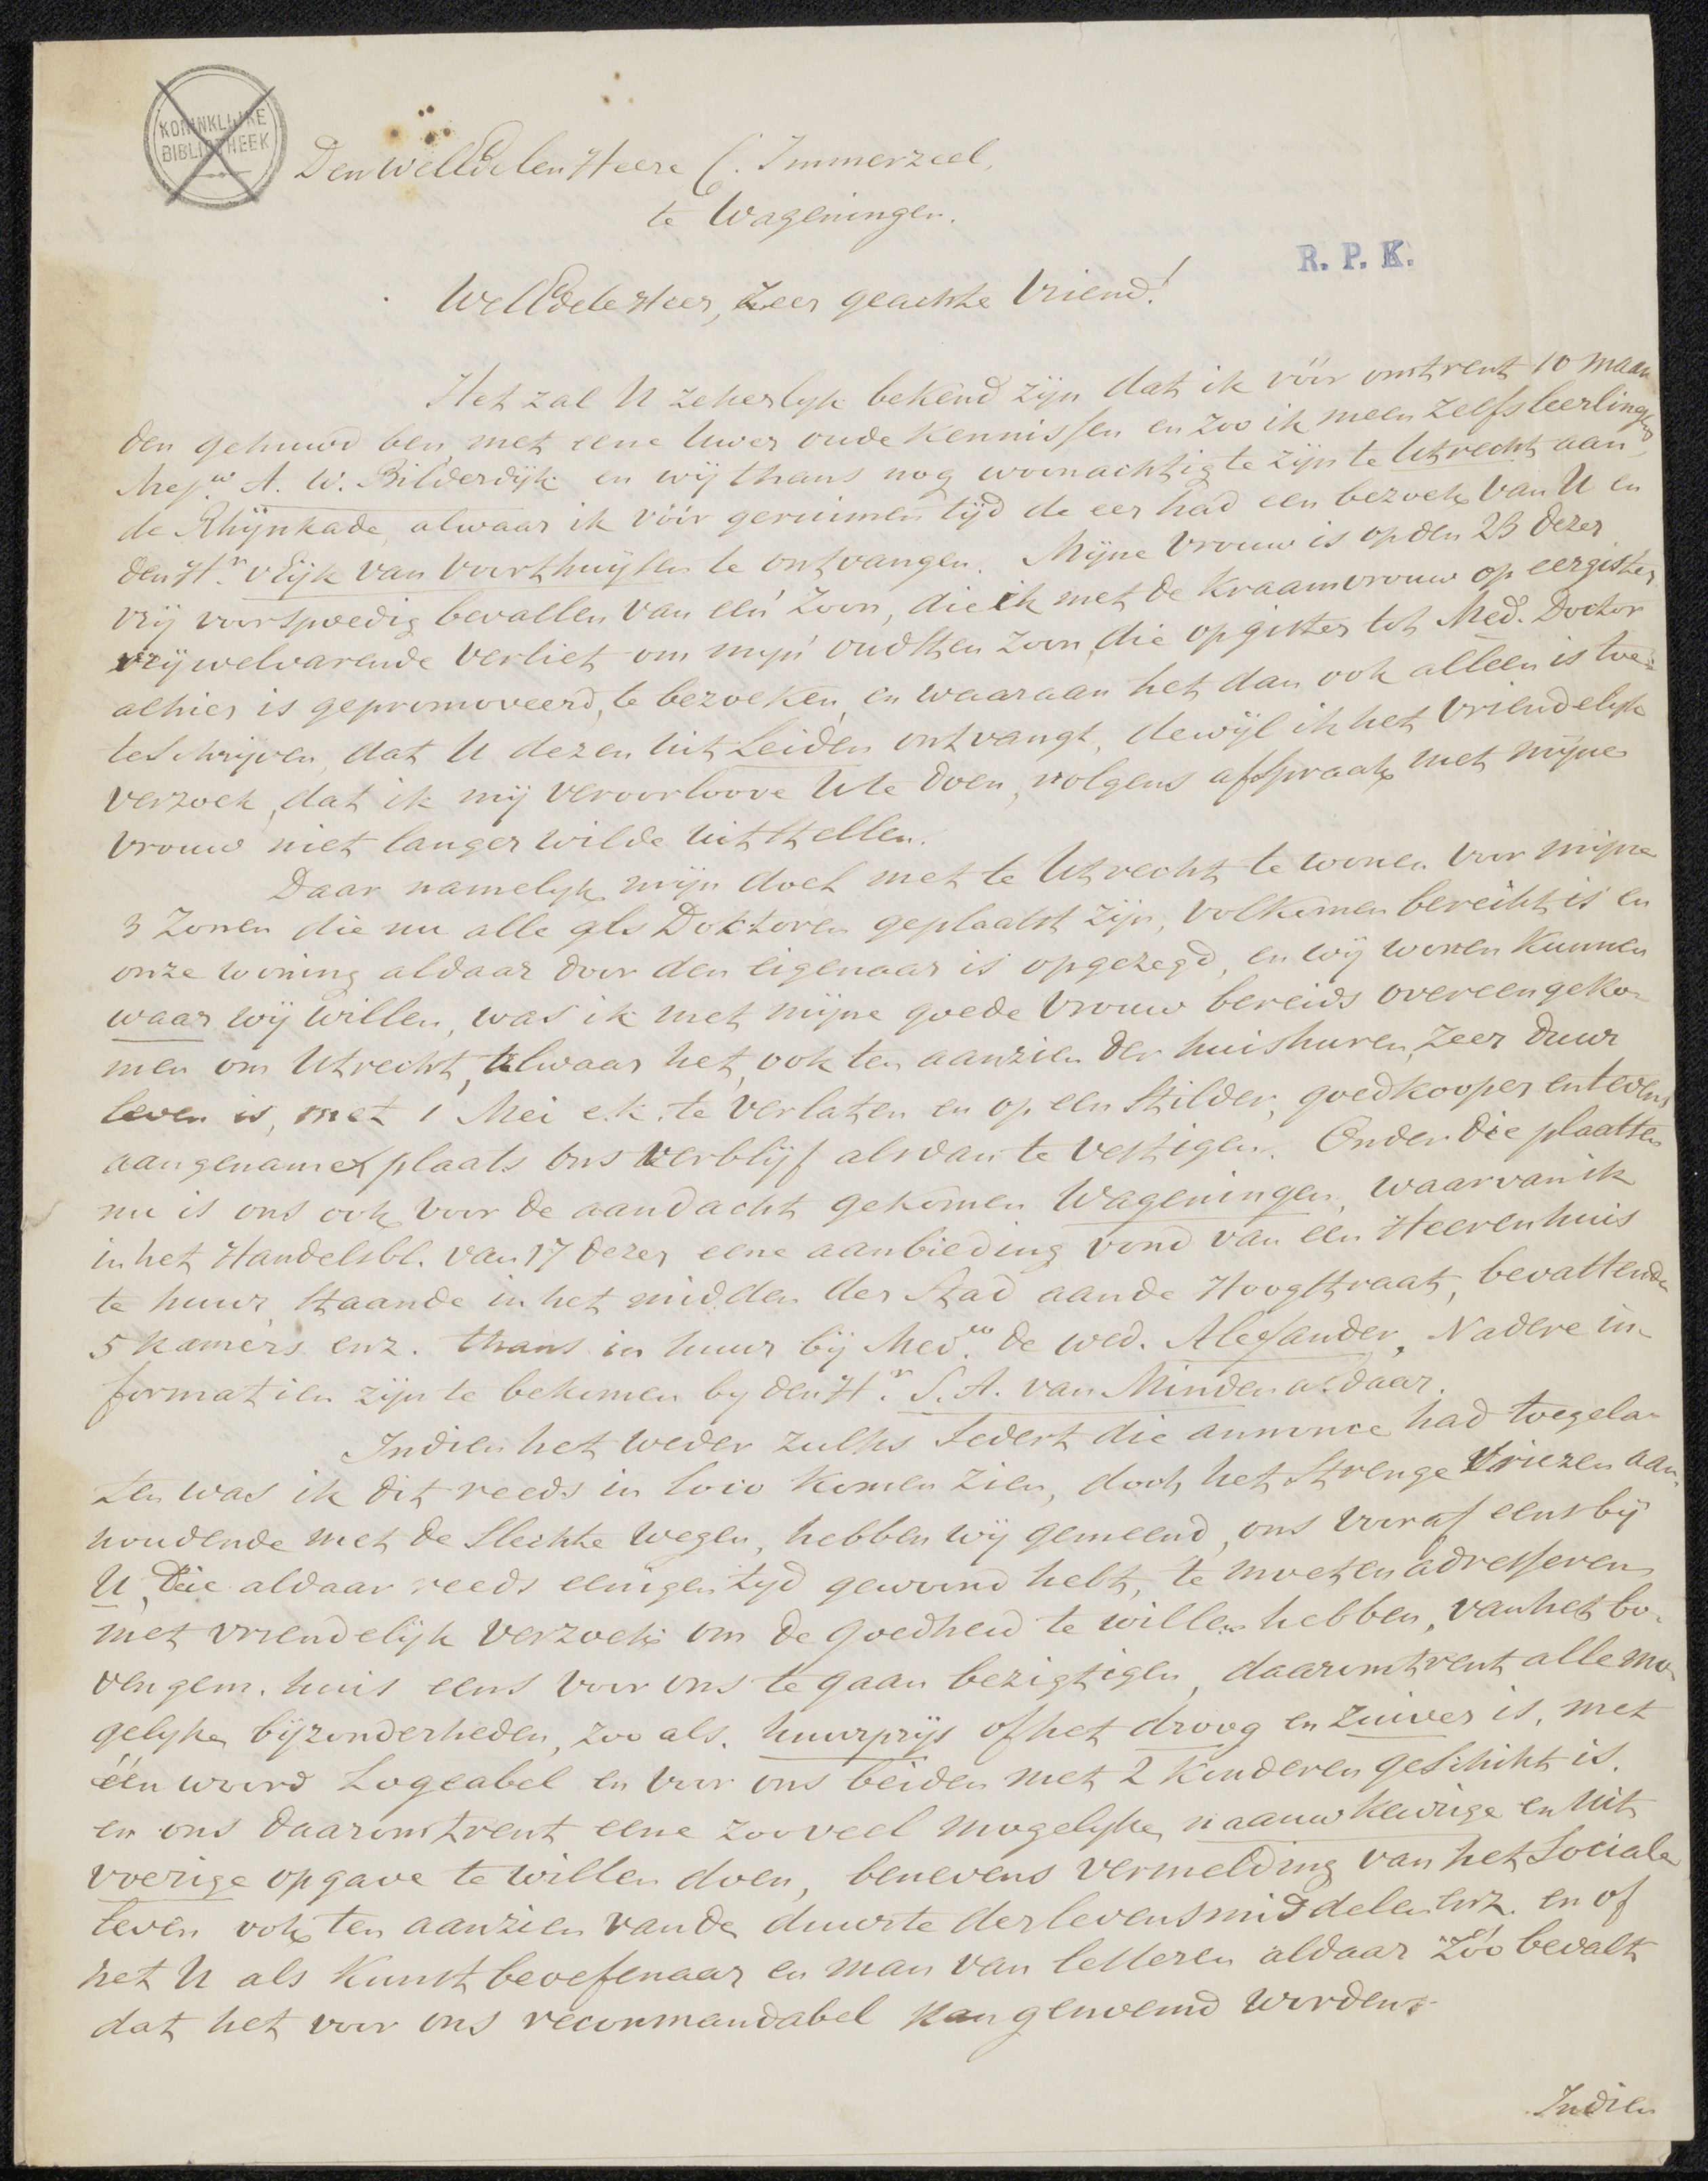 KONINKLIJKE
BIBLIOTHEEK
Den WelEdelen Heere C. Immerzeel,
te Wageningen.
R. P. K.
WelEdele Heer, Zeer geachte Vriend!
Het zal U zekerlyk bekend zijn dat ik vóór omtrent 10 maan
den gehuwd ben, met eene Uwer oude Kennissen en zoo ik meen zelfs leerlinge,
Mejw. A. W. Bilderdijk en wij thans nog woonachtig te zijn te Utrecht aan
de Rhijnkade alwaar ik vóór geruimen tijd de eer had een bezoek van U en
den Hr. v Eijk van Voorthuijsen te ontvangen. Mijne Vrouw is op den 23 dezer
vrij voorspoedig bevallen van een Zoon, die ik met de Kraamvrouw op eergister
vrij welvarende verliet om mijn oudsten zoon, die op gister tot Med. Doctor
alhier is gepromoveerd, te bezoeken, en waaraan het dan ook alleen is toe=
teschrijven, dat U dezen uit Leiden ontvangt, dewijl ik het Vriendelyk
verzoek, dat ik mij veroorloove U te doen, volgens afspraak met mijne
Vrouw niet langer wilde uitstellen.
Daar namelyk mijn doel met te Utrecht te wonen voor mijne
3 Zonen die nu alle als Doktoren geplaatst zijn, volkomen bereikt is en
onze woning aldaar door den eigenaar is opgezegd, en wij wonen kunnen
waar wij willen, was ik met mijne goede Vrouw bereids overeengeko-
men om Utrecht, alwaar het, ook ten aanzien der huishuren, zeer duur
leven is, met 1 Mei e.k. te verlaten en op een stilder, goedkooper en tevens
aangename plaats ons verblijf alsdan te vestigen. Onder die plaatsen
nu is ons ook voor de aandacht gekomen Wageningen, waarvan ik
in het Handelsbl. van 17 dezer eene aanbieding vond van een Heerenhuis
te huur, staande in het midden der Stad aan de Hoogstraat, bevattende
5 kamers enz. thans in huur bij Medw. de wed. Alexander, Nadere in-
formatien zijn te bekomen by den Hr. S. A. van Minden aldaar.
Indien het weder zulks sedert die annonce had toegela-
ten was ik dit reeds in loco komen zien, doch het strenge Vriezen aan-
houdende met de slechte wegen, hebben wij gemeend, ons vooraf eens bij
U, die aldaar reeds eenigen tijd gewoond hebt, te moeten adresseren
met vriendelijk verzoek om de goedheid te willen hebben, van het bo-
vengem. huis eens voor ons te gaan bezigtigen, daaromtrent alle mo-
gelyke bijzonderheden, zoo als, huurprijs of het droog en zuiver is, met
één woord Logeabel en voor ons beiden met 2 kinderen geschikt is,
en ons daaromtrent eene zooveel mogelyke naauwkeurige en uit
voerige opgave te willen doen, benevens vermelding van het Sociale
leven ook ten aanzien van de duurte der levensmiddelen enz. en of
het U als Kunstbeoefenaar en man van letteren aldaar zóó bevalt
dat het voor ons recommandabel kan genoemd worden.
Indien